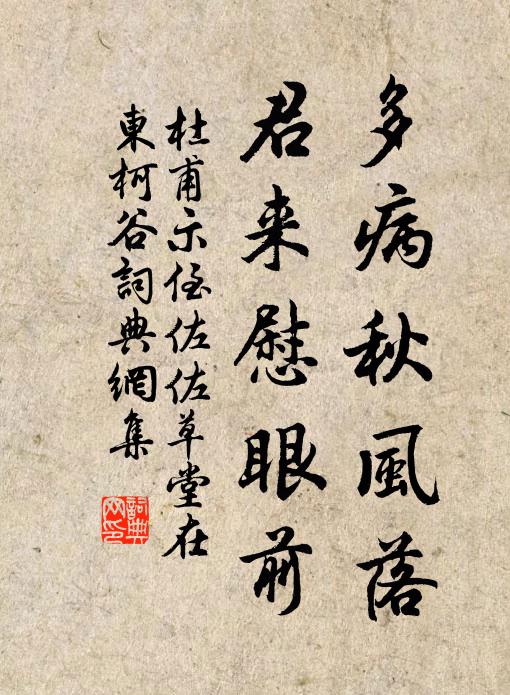 多病秋風落
君来慰眼前
杜甫示侄佐佐草堂在
東柯谷詞典網集
詞典
网印